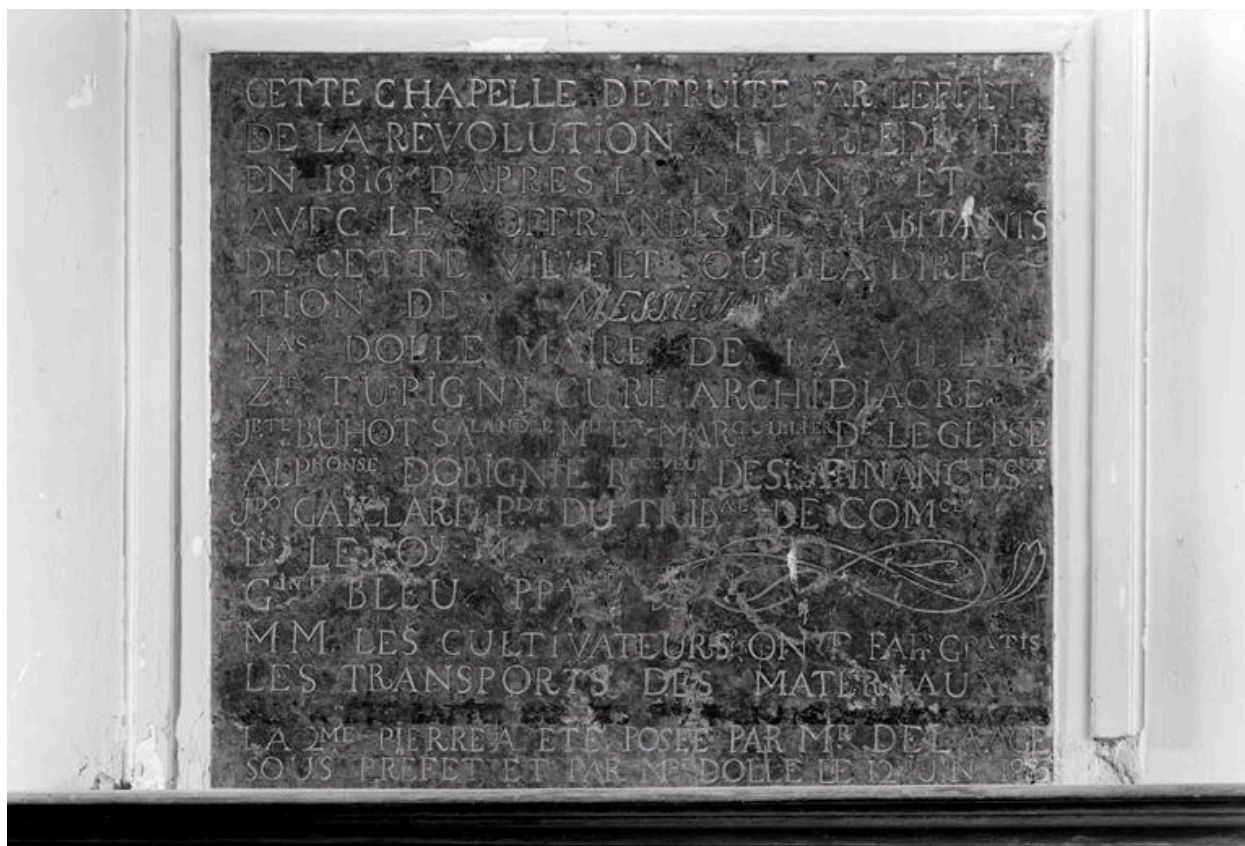 CETTE CHAPELLE DETRUITE PAR LEFFET
DE LA REVOLUTION A ETE REEDIFIEE
EN 1816 DAPRES LA DEMANDE ET
AVEC LES OFFRANDES DES HABITANTS
DE CETTE VILLE ET SOUS LA DIREC
TION DE MESSIEURS
NAS DOLLE MAIRE DE LA VILLE
TUPIGNY CURE ARCHIDIACRE
JBTE BUHOT MARGUILLIER DE LEGLISE
ALPHONSE DOBIGNIE RECEVEUR DES FINANCES
GAILLARD PDT DU TRIBAL DE COMCE
BLEU
MM LES CULTIVATEURS ONT FAIT GRATIS
LES TRANSPORTS DES MATERIAUX
LA 2ME PIERRE A ETE POSEE PAR MR
SOUS PREFET ET PAR MR DOLLE LE 12 JUIN